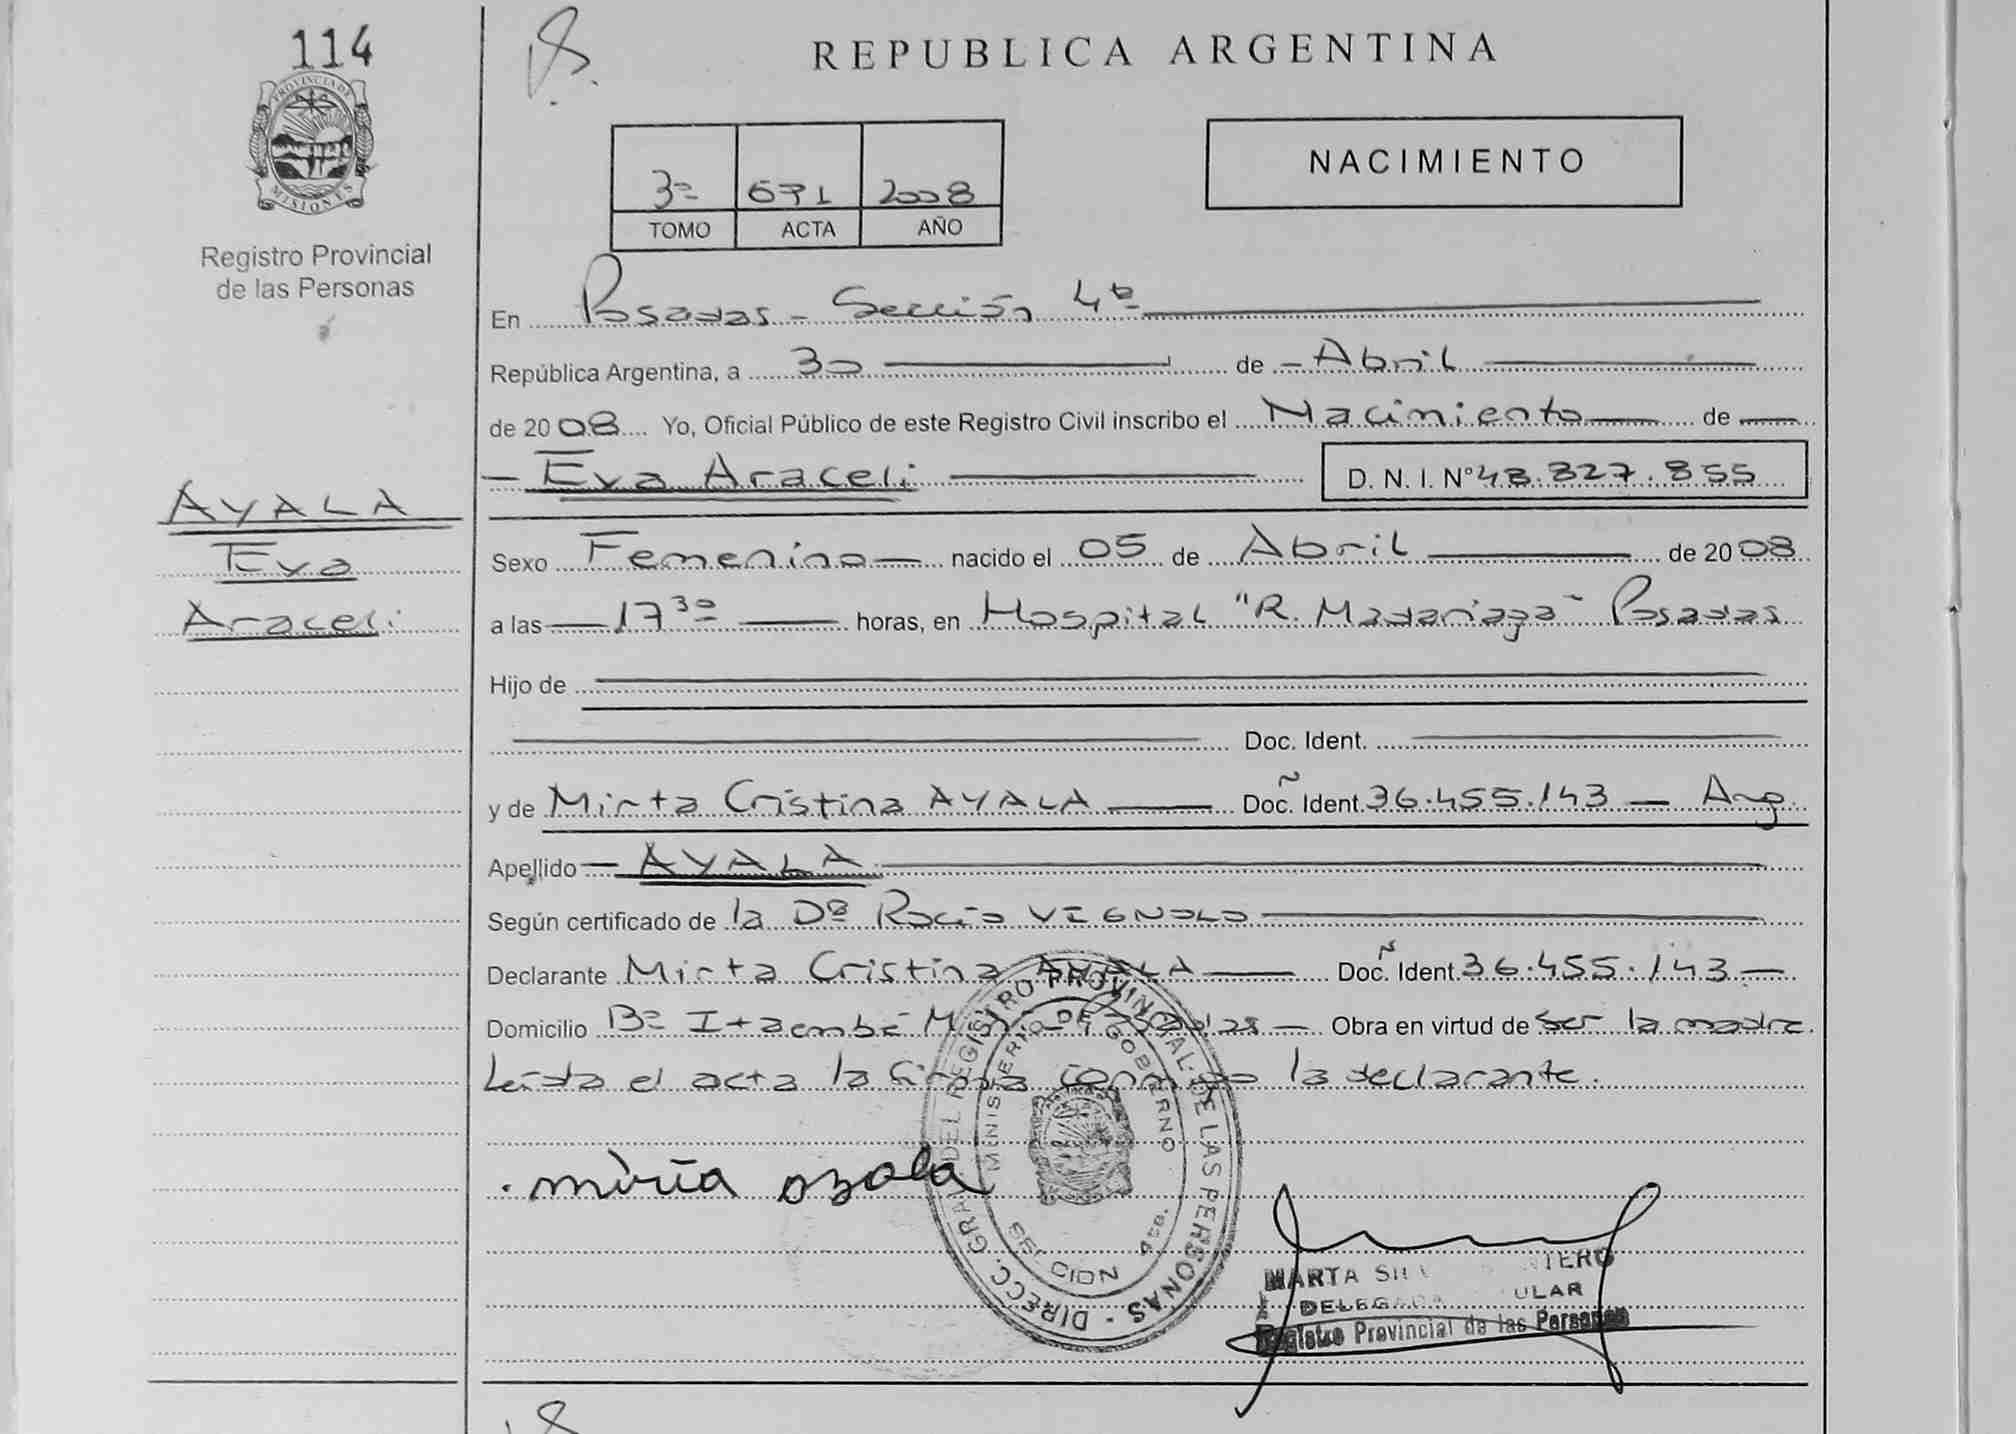 114
PROVINCIA DE
MISIONES
Registro Provincial
de las Personas
AYALA
Eva
Araceli
REPUBLICA ARGENTINA
3º 671 2008
TOMO ACTA AÑO
NACIMIENTO
En Posadas - Sección 4ª
República Argentina, a 30 de - Abril
de 2008 Yo, Oficial Público de este Registro Civil inscribo el Nacimiento de
- Eva Araceli D. N. I. Nº 48.827.855
Sexo Femenino nacido el 05 de Abril de 2008
a las 17 30 horas, en Hospital "R. Madariaga" Posadas
Hijo de
Doc. Ident.
y de Mirta Cristina AYALA Doc. Ident. 36.455.143 - Arg.
Apellido - AYALA
Según certificado de la Dra Rocío VIGNOLO
Declarante Mirta Cristina AYALA Doc. Ident. 36.455.143 -
Domicilio Bº Itaembé Miní Posadas - Obra en virtud de ser la madre
Leída el acta la firma conmigo la declarante.
DIRECC. GRAL. DEL REGISTRO PROVINCIAL DE LAS PERSONAS -
MINISTERIO DE GOBIERNO
SECCION 4ta.
MARTA
DELEGADA TITULAR
Registro Provincial de las Personas